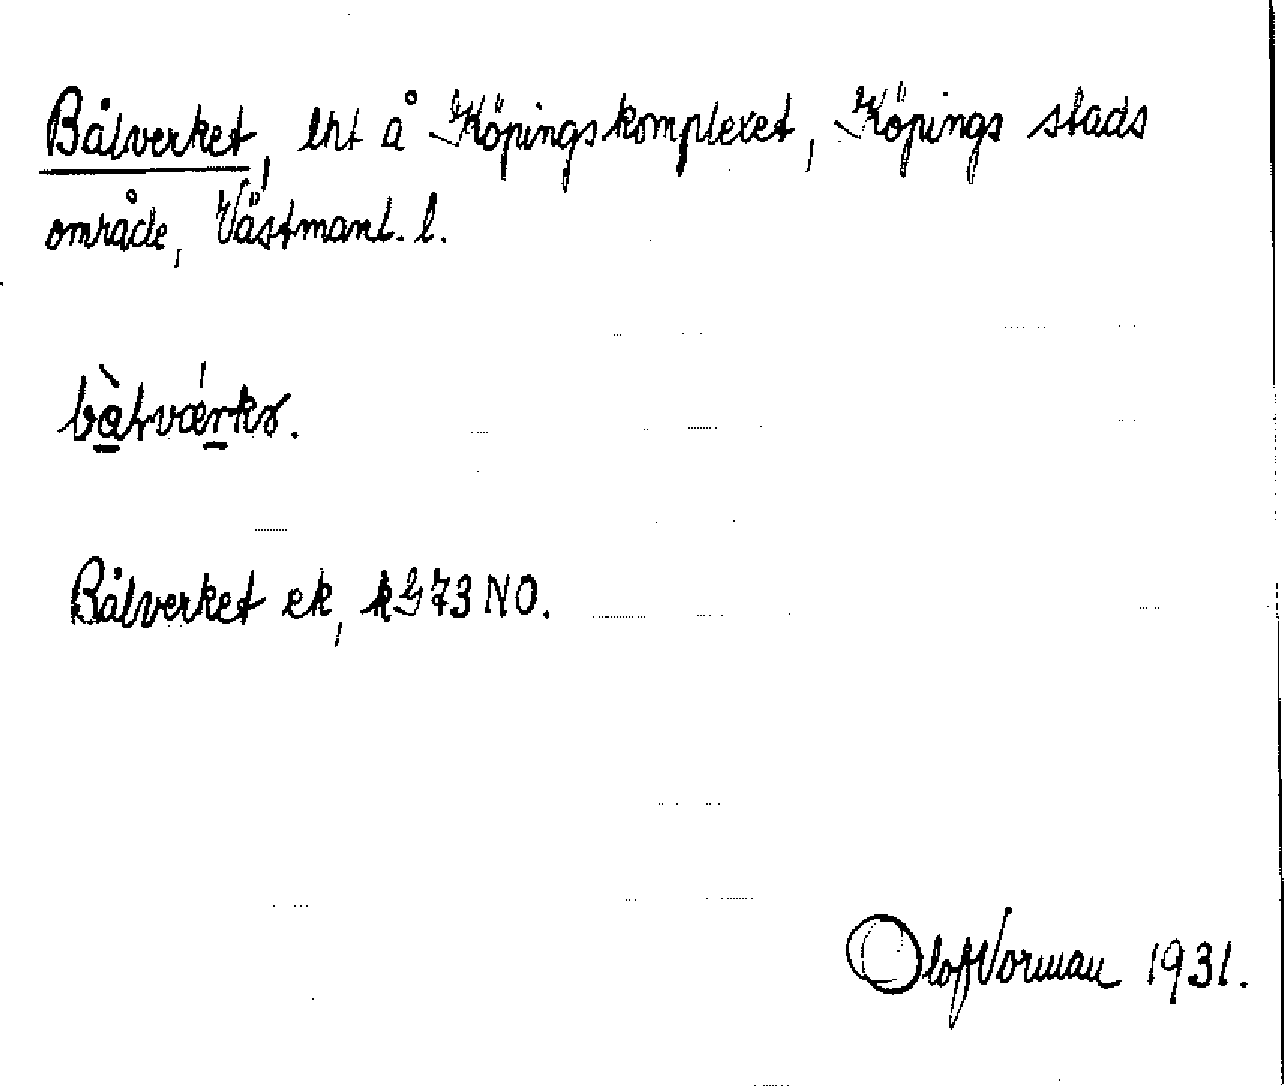 Bålverket, lht å Köpingskomplexet, Köpings stads
område, Västmanl. l.
Bålverket ek, kG73NO.
Olof Norman 1931.